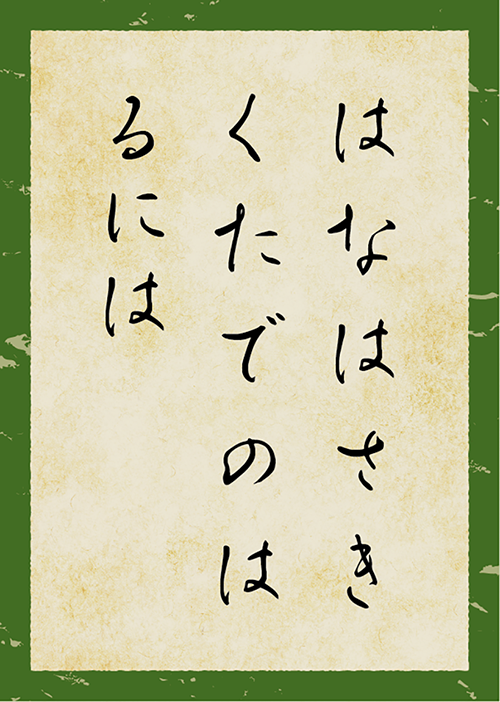 はなはさき
くたでのは
るには